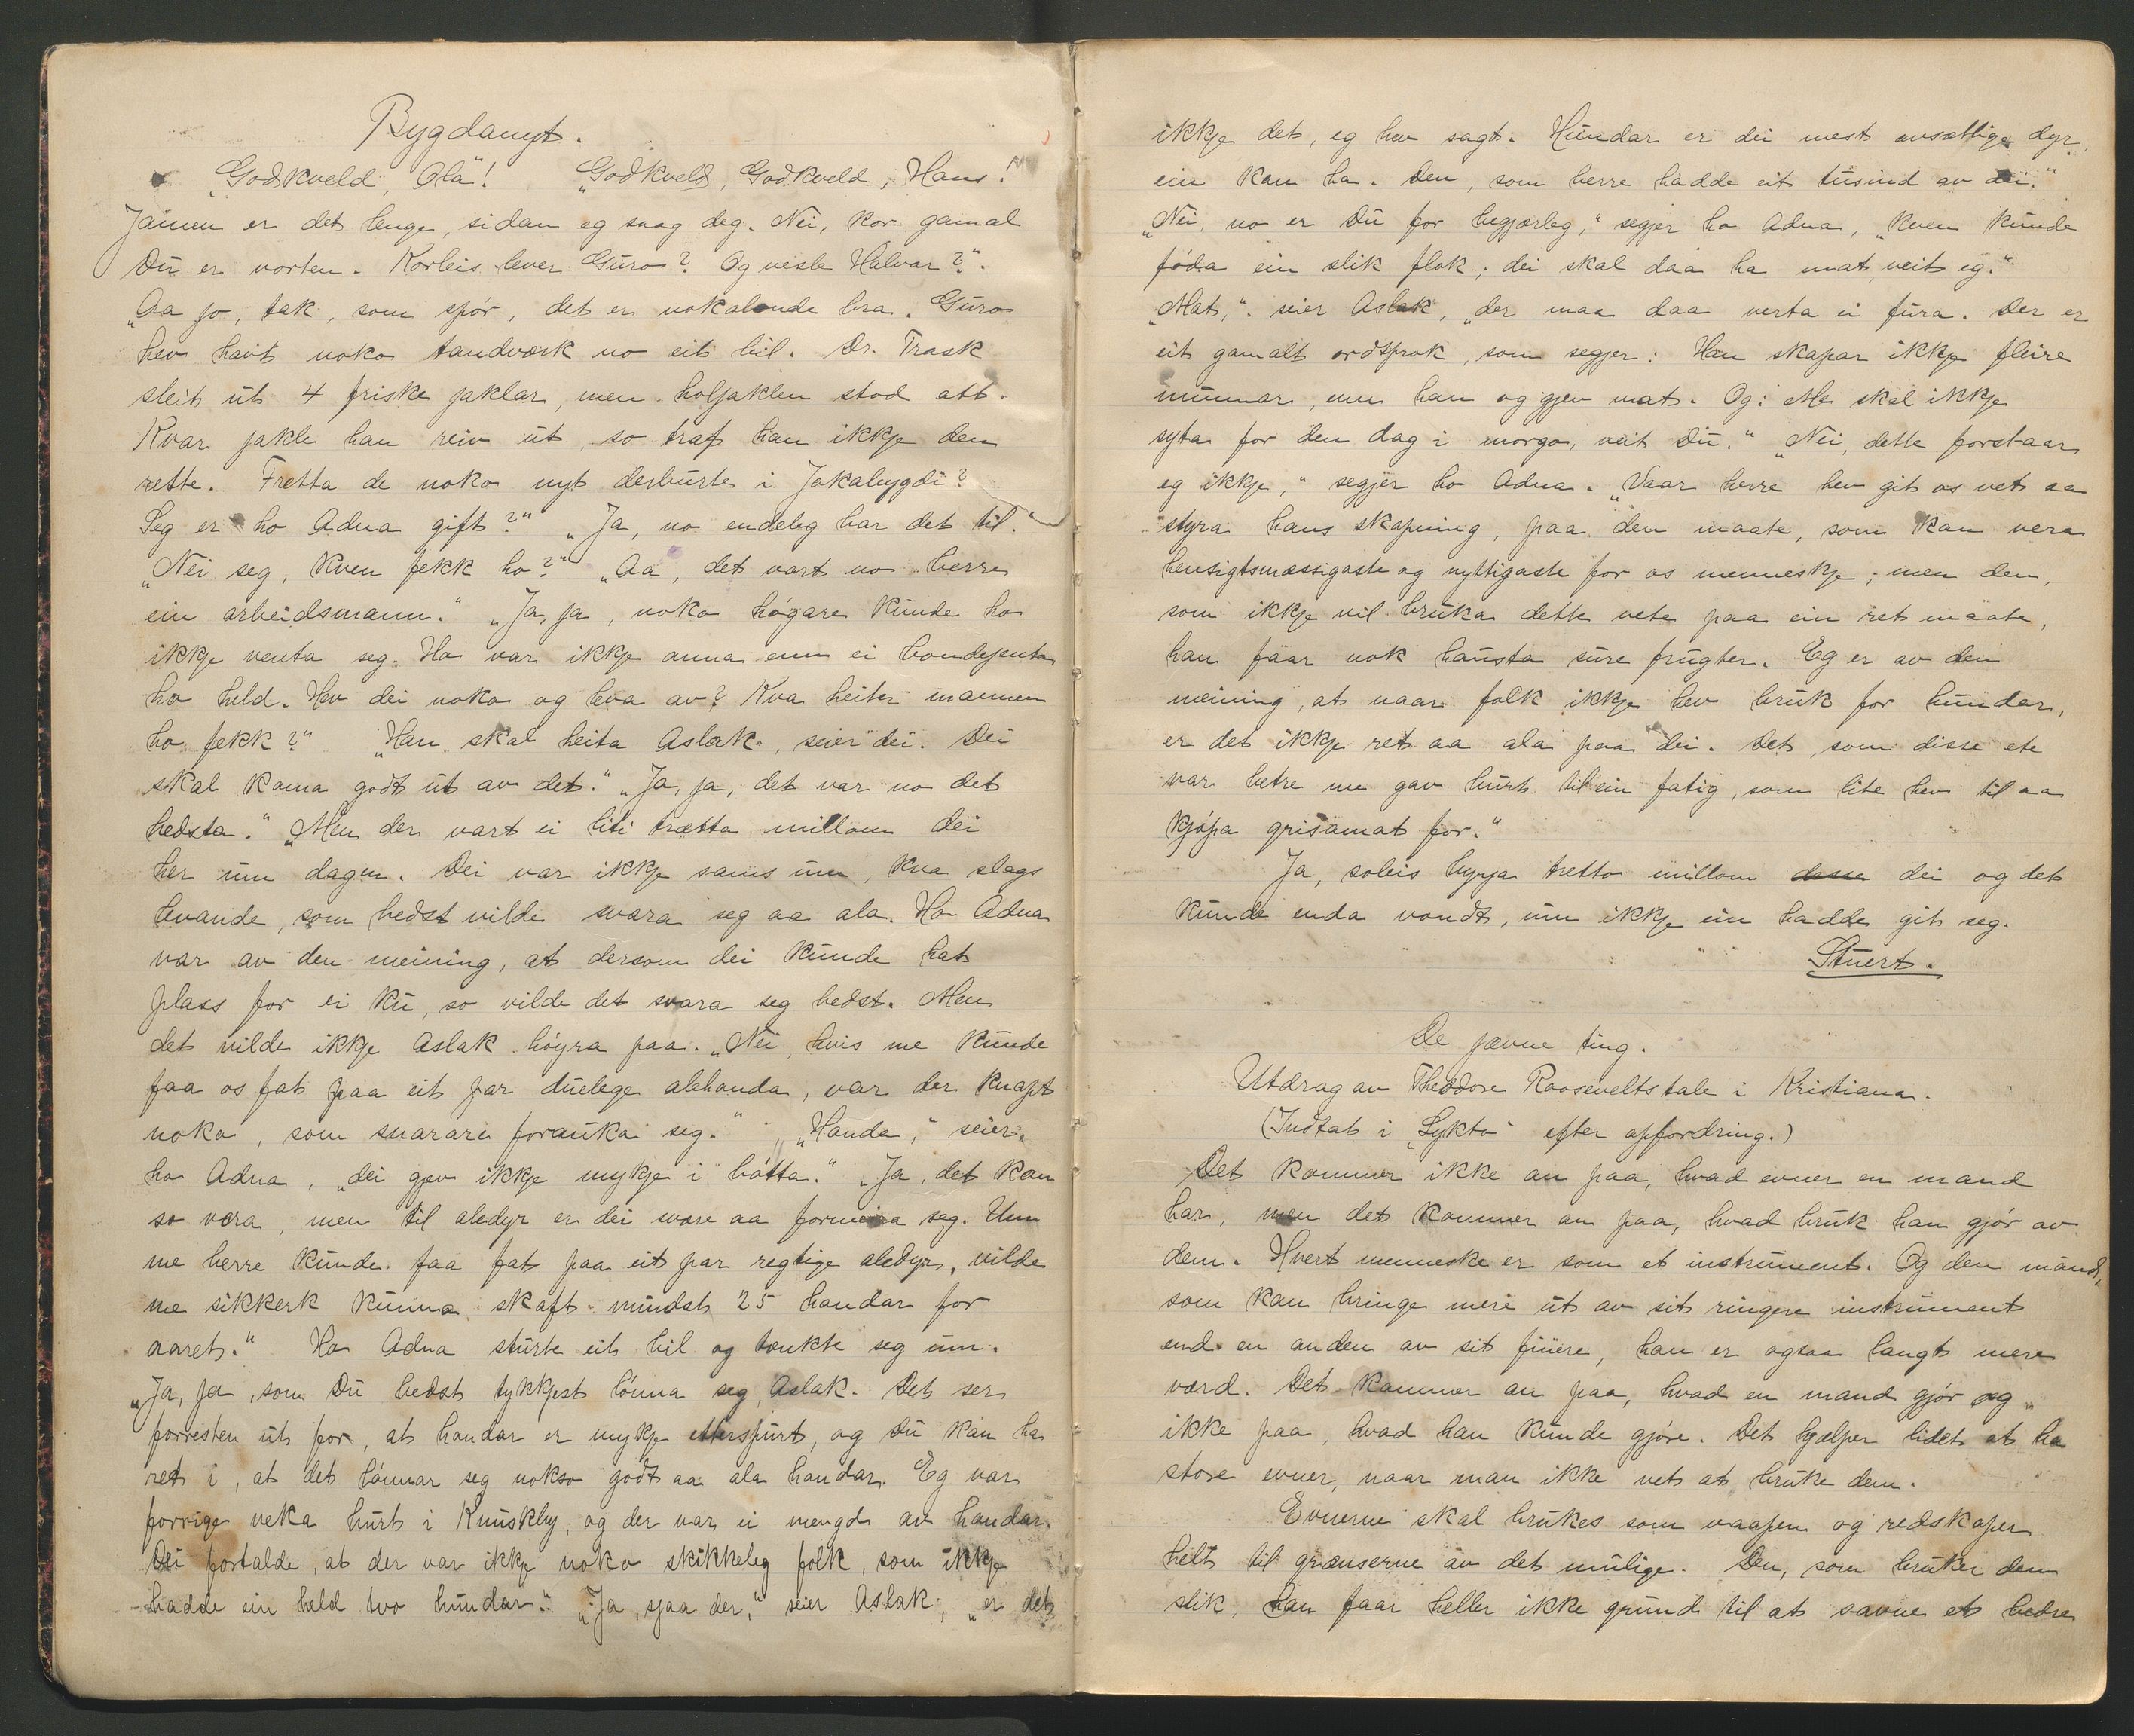 Bygdanyt.
"Godkveld, Ola"! "Godkveld, Godkveld, Hans!
Jaimen er det lenge, sidan eg saag deg. Nei, kor gamal
Du er vorten. Korleis lever Guro? Og vesle Halvar?".
"Aa jo, tak, som spör, det er nokalonde bra. Guro
hev havt noko tandværk no eit bil. Dr. Trask
sleit ut 4 friske jaklar, men holjaklen stod att.
Kvar jakle han reiv ut, so traf han ikkje den
rette. Fretta de noko nyt derburte i Jokabygdi?
Seg er ho Adna gift?" "Ja, no endeleg bar det til."
"Nei seg, kven fekk ho?" "Aa, det vart no berre
ein arbeidsmann." "Ja, ja, noko högare kunde ho
ikkje venta seg. Ho var ikkje anna enn ei bondejenta
ho held. Hev dei noko og leva av? Kva heiter mannen
ho fekk?" "Han skal heita Aslak, seier dei. Dei
skal koma godt ut av det." "Ja, ja, det var no det
bedsta." "Men der vart ei liti trætta millom dei
her um dagen. Dei var ikkje sams um, kva slags
levande, som bedst vilde svara seg aa ala. Ho Adna
var av den meining, at dersom dei kunde hat
plass for ei ku, so vilde det svara seg bedst. Men
det vilde ikkje Aslak höyra paa. "Nei, hvis me kunde
faa os fat paa eit par duelege alehanda, var der knapt
noko, som snarare forauka seg." "Handa," seier
ho Adna, "dei gjev ikkje mykje i bötta." "Ja, det kan
so vera, men til aledyr er dei svære aa formeira seg. Um
me berre kunde faa fat paa eit par regtige aledyr, vilde
me sikkerk kunna skaft mindst 25 handar for
aaret." Ho Adna sturte eit bil og tænkte seg um.
"Ja, ja, som Du bedst tykkjest lönna seg, Aslak. Det ser
forresten ut for, at handar er mykje etterspurt, og Du kan ha
ret i, at det lönnar seg nokso godt aa ala handar. Eg var
forrige veka burt i Knuskby, og der var ei mengd av handar.
Dei fortalde, at der var ikkje noko skikkeleg folk, som ikkje
hadde ein held tvo hundar." "Ja, sjaa der," seier Aslak, "er det
ikkje det, eg hev sagt. Hundar er dei mest avsættlige dyr,
ein kan ha. Den, som berre hadde eit tusind av dei."
"Nei, no er Du for begjærleg," segjer ho Adna, "kven kunde
föda ein slik flok; dei skal daa ha mat, veit eg."
"Mat," seier Aslak, "der maa daa verta ei fura. Der er
eit gamalt ordsprok, som segjer: Han skapar ikkje fleire
munnar, enn han og gjev mat. Og: Me skal ikkje
syta for den dag i morgo, veit Du." "Nei, dette forstaar
eg ikkje," segjer ho Adna. "Vaar herre hev git os vet aa
styra hans skapning, paa den maate, som kan vera
hensigtsmæssigaste og nyttigaste for os menneskje; men den,
som ikkje vil bruka dette vete paa ein ret maate,
han faar nok hausta sure frugter. Eg er av den
meining, at naar folk ikkje hev bruk for hundar,
er det ikkje ret aa ala paa dei. Det, som disse ete
var betre me gav burt til ein fatig, som lite hev til aa
kjöpa grisamat for."
Ja, soleis byrja tretto millom dei og det
kunde enda vondt, um ikkje ein hadde git seg.
Stuert.
De jævne ting.
Utdrag av Theodore Roosevelts tale i Kristiana.
(Indtat i "Lykto" efter opfordring.)
Det kommer ikke an paa, hvad evner en mand
har, men det kommer an paa, hvad bruk han gjör av
dem. Hvert menneske er som et instrument. Og den mand,
som kan bringe mere ut av sit ringere instrument
end en anden av sit finere, han er ogsaa langt mere
værd. Det kommer an paa, hvad en mand gjör og
ikke paa, hvad han kunde gjöre. Det hjælper lidet at ha
store evner, naar man ikke vet at bruke dem.
Evnerne skal brukes som vaapen og redskaper
helt til grænserne av det mulige. Den, som bruker dem
slik, han faar heller ikke grund til at savne et bedre